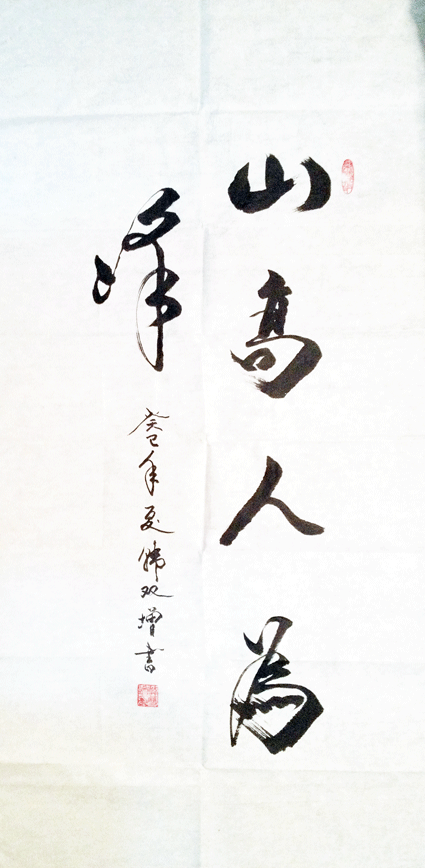 山高人為
峰
癸巳年夏韩双增書